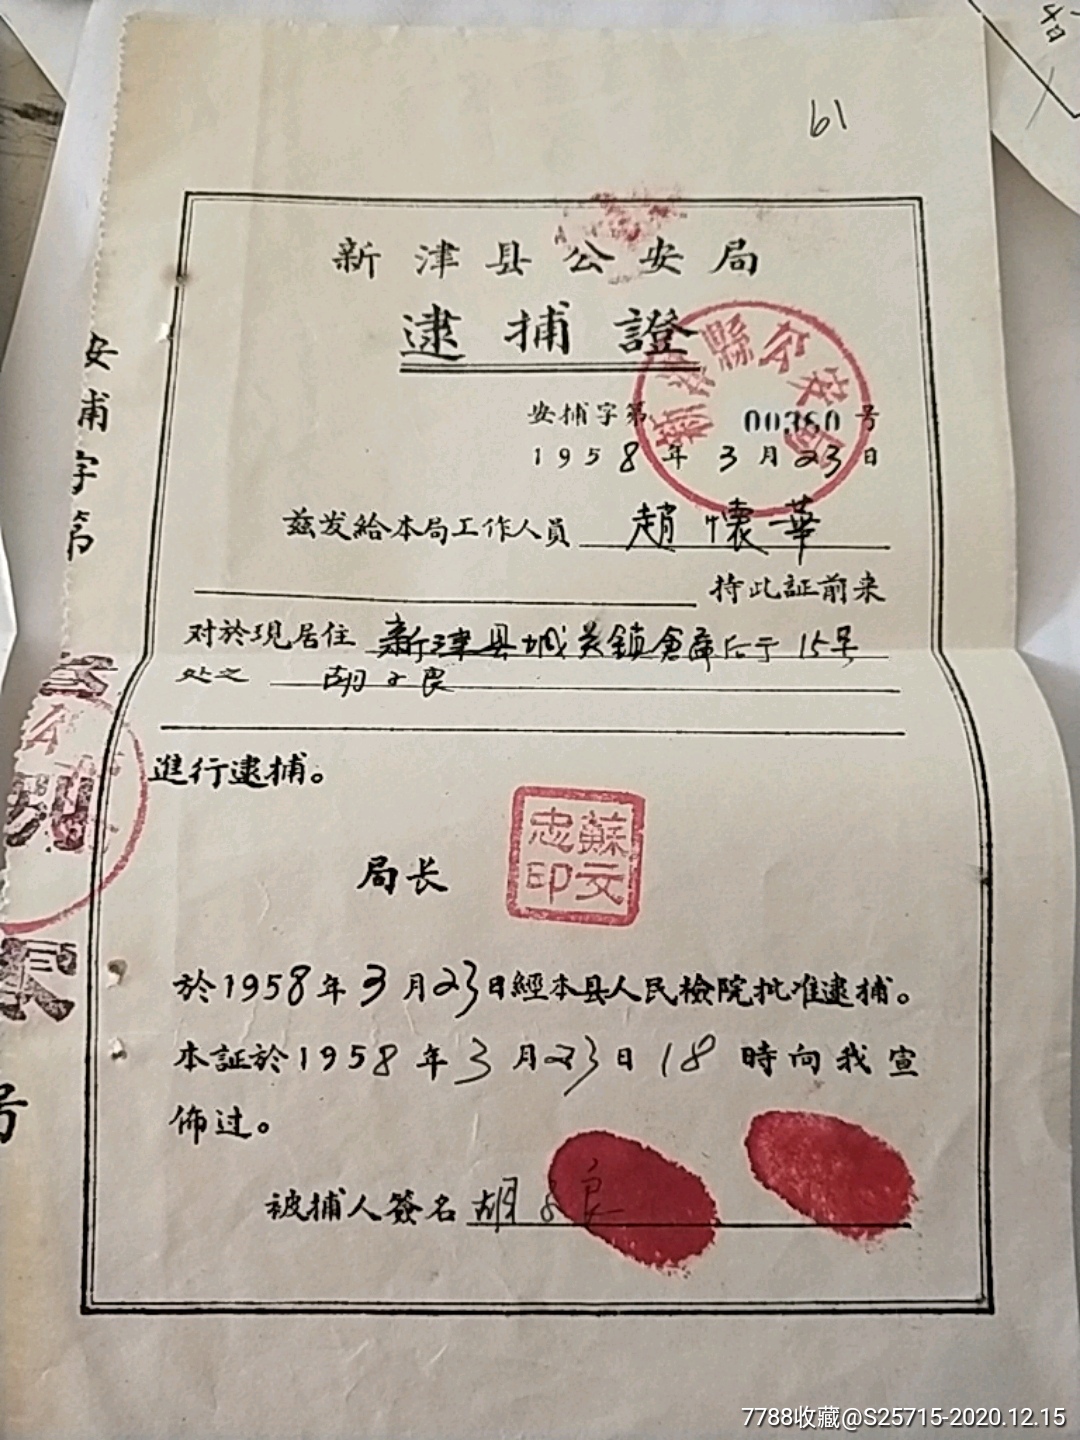 61
新津县公安局
逮捕證
新津縣公安局
安捕字第 00360 号
1958年3月23日
茲发給本局工作人員 趙懷華
持此証前来
对於現居住 新津县城关鎮倉庫后于15号
处之 胡子良
進行逮捕。
局长
蘇文忠印
於1958年3月23日經本县人民檢院批准逮捕。
本証於1958年3月23日18時向我宣
佈过。
被捕人簽名 胡子良
安捕字第
号
7788收藏@S25715-2020.12.15